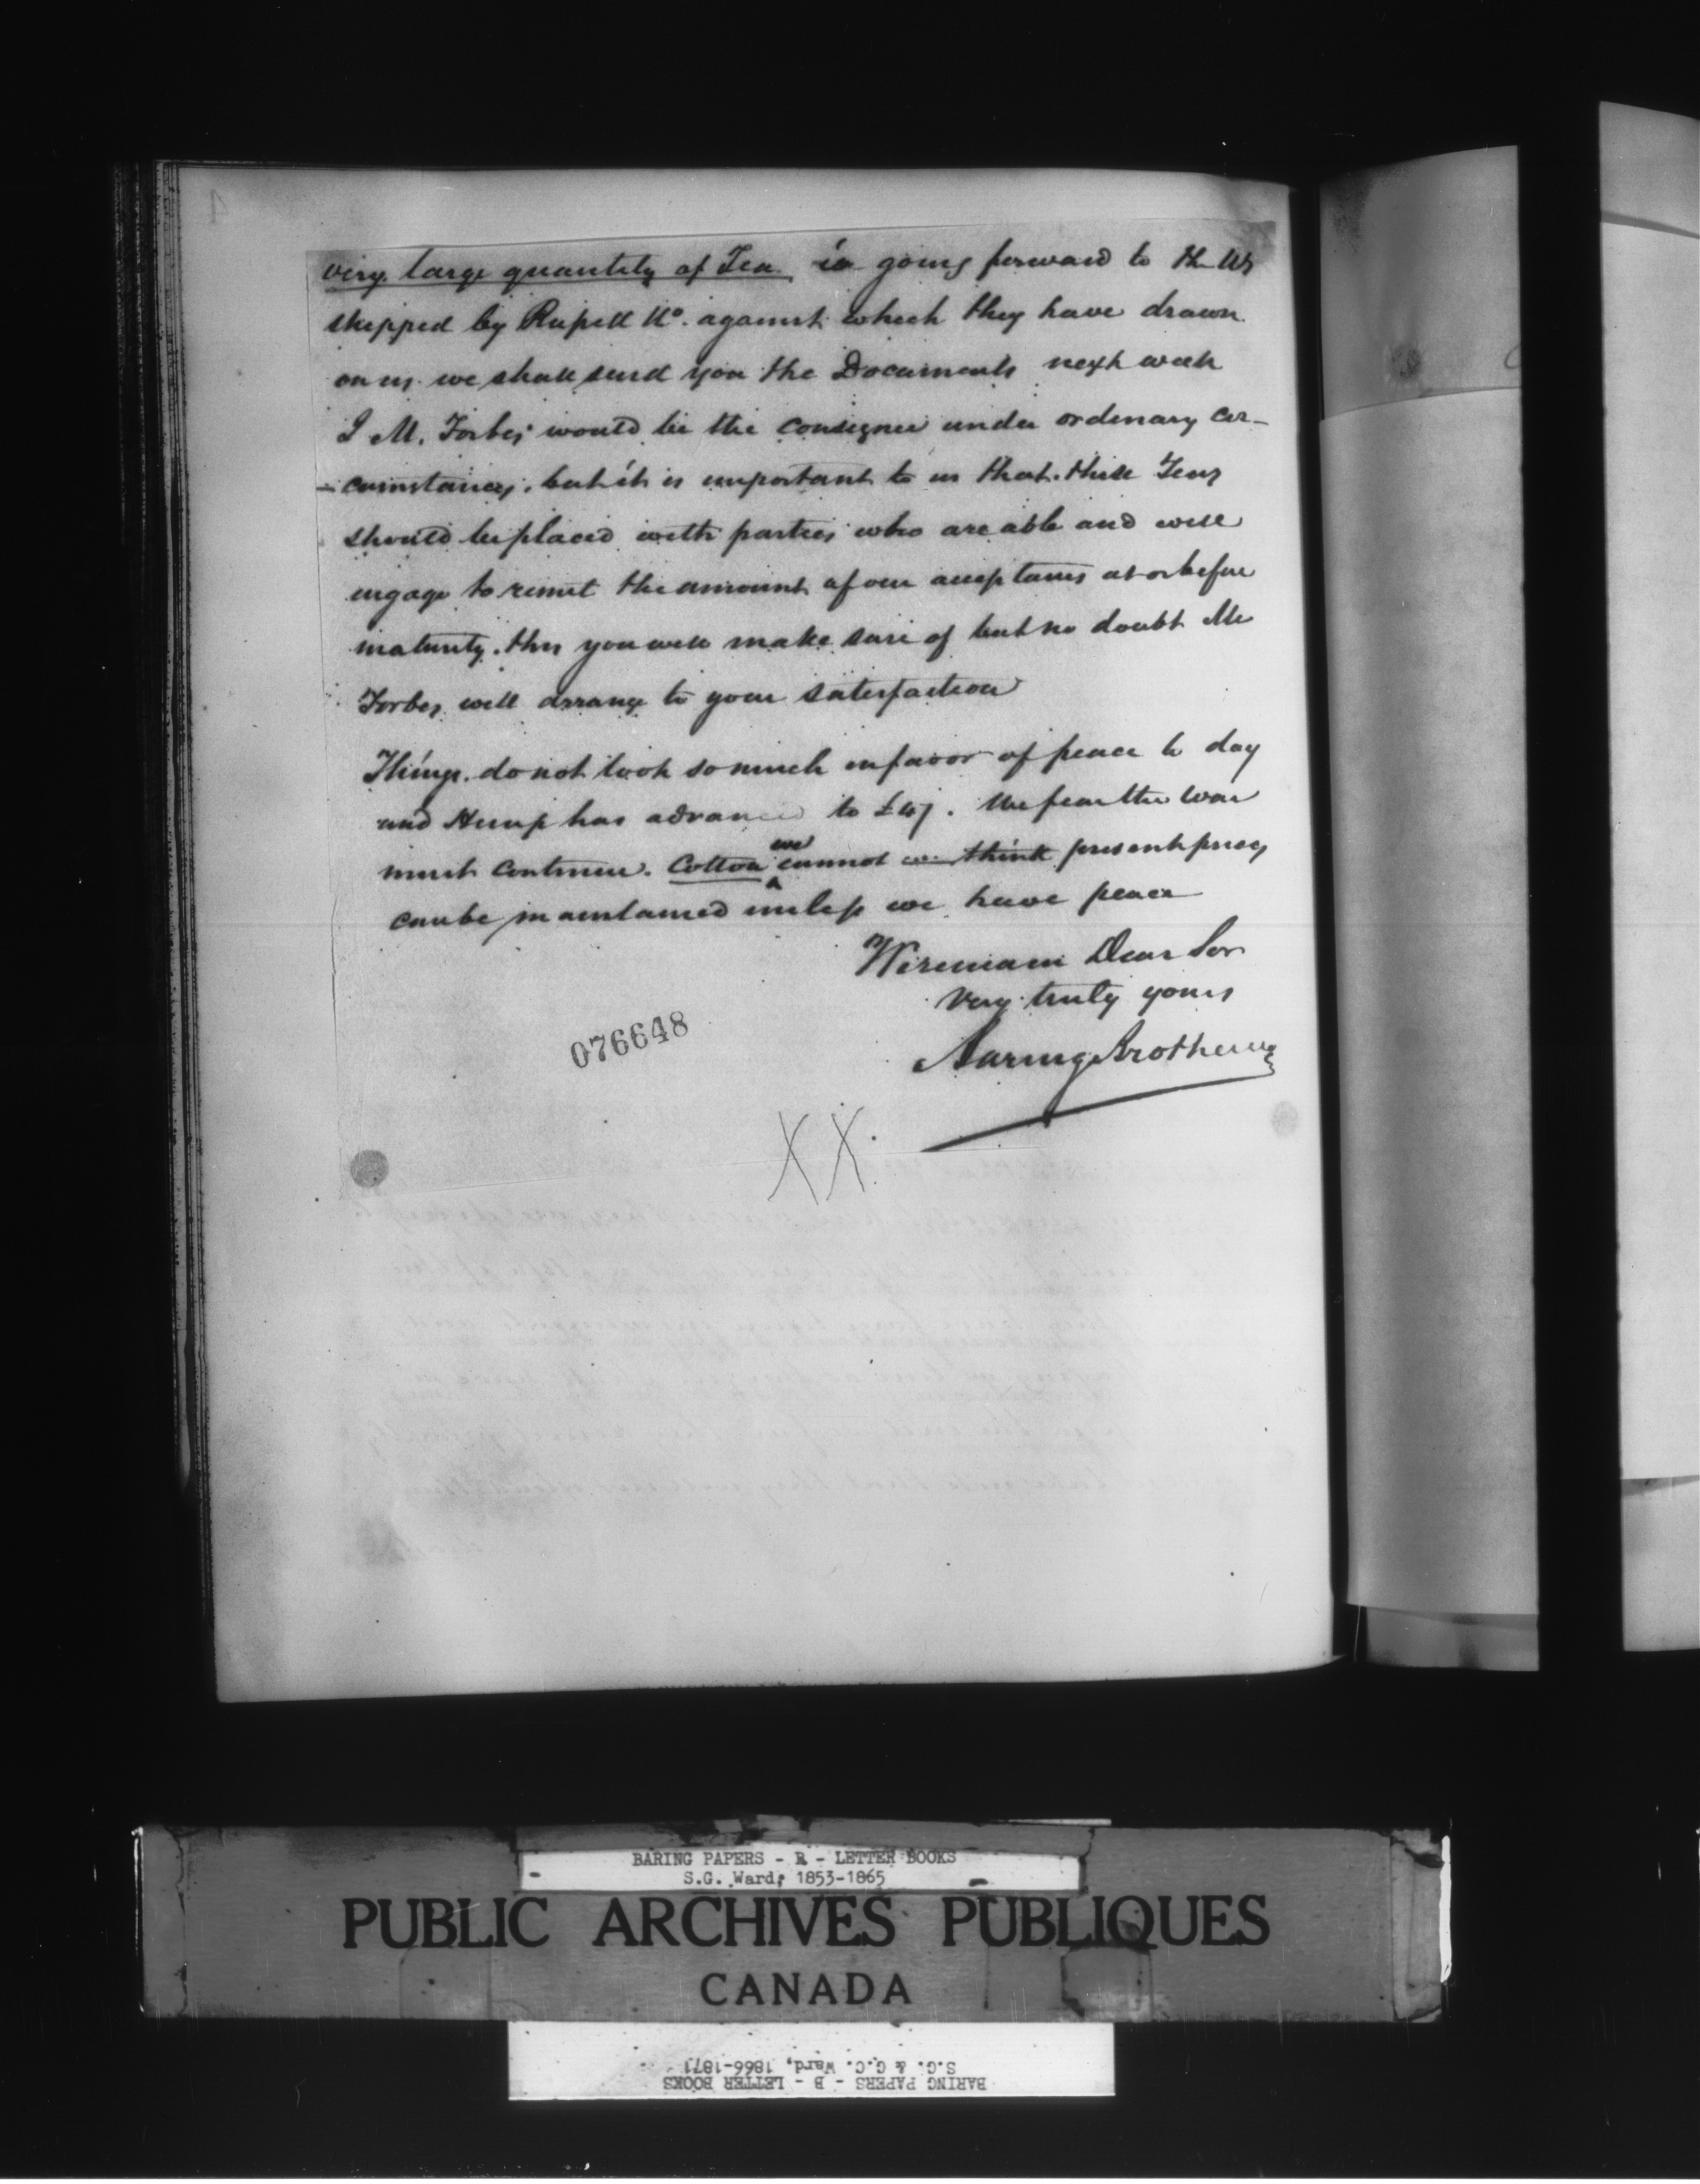 very large quantity of Tea is going forward to the US
shipped by Russell & Co. against which they have drawn
on us. we shall send you the Documents next week
J M. Forbes would be the consignee under ordinary cir-
-cumstances, but it is important to us that these Teas
should be placed with parties who are able and will
engage to remit the amount of our acceptances at or before
maturity. this you will make sure of but no doubt Mr
Forbes will arrange to your satisfaction
Things do not look so much in favor of peace to day
and Hemp has advanced to £47. We fear the War
must continue. Cotton we cannot we think present prices
can be maintained unless we have peace
We remain Dear Sir
Very truly yours
Baring Brothers & Co
076648
XX.
BARING PAPERS - B - LETTER BOOKS
S.G. Ward, 1853-1865
PUBLIC ARCHIVES PUBLIQUES
CANADA
BARING PAPERS - B - LETTER BOOKS
S.G. & G.C. Ward, 1866-1871